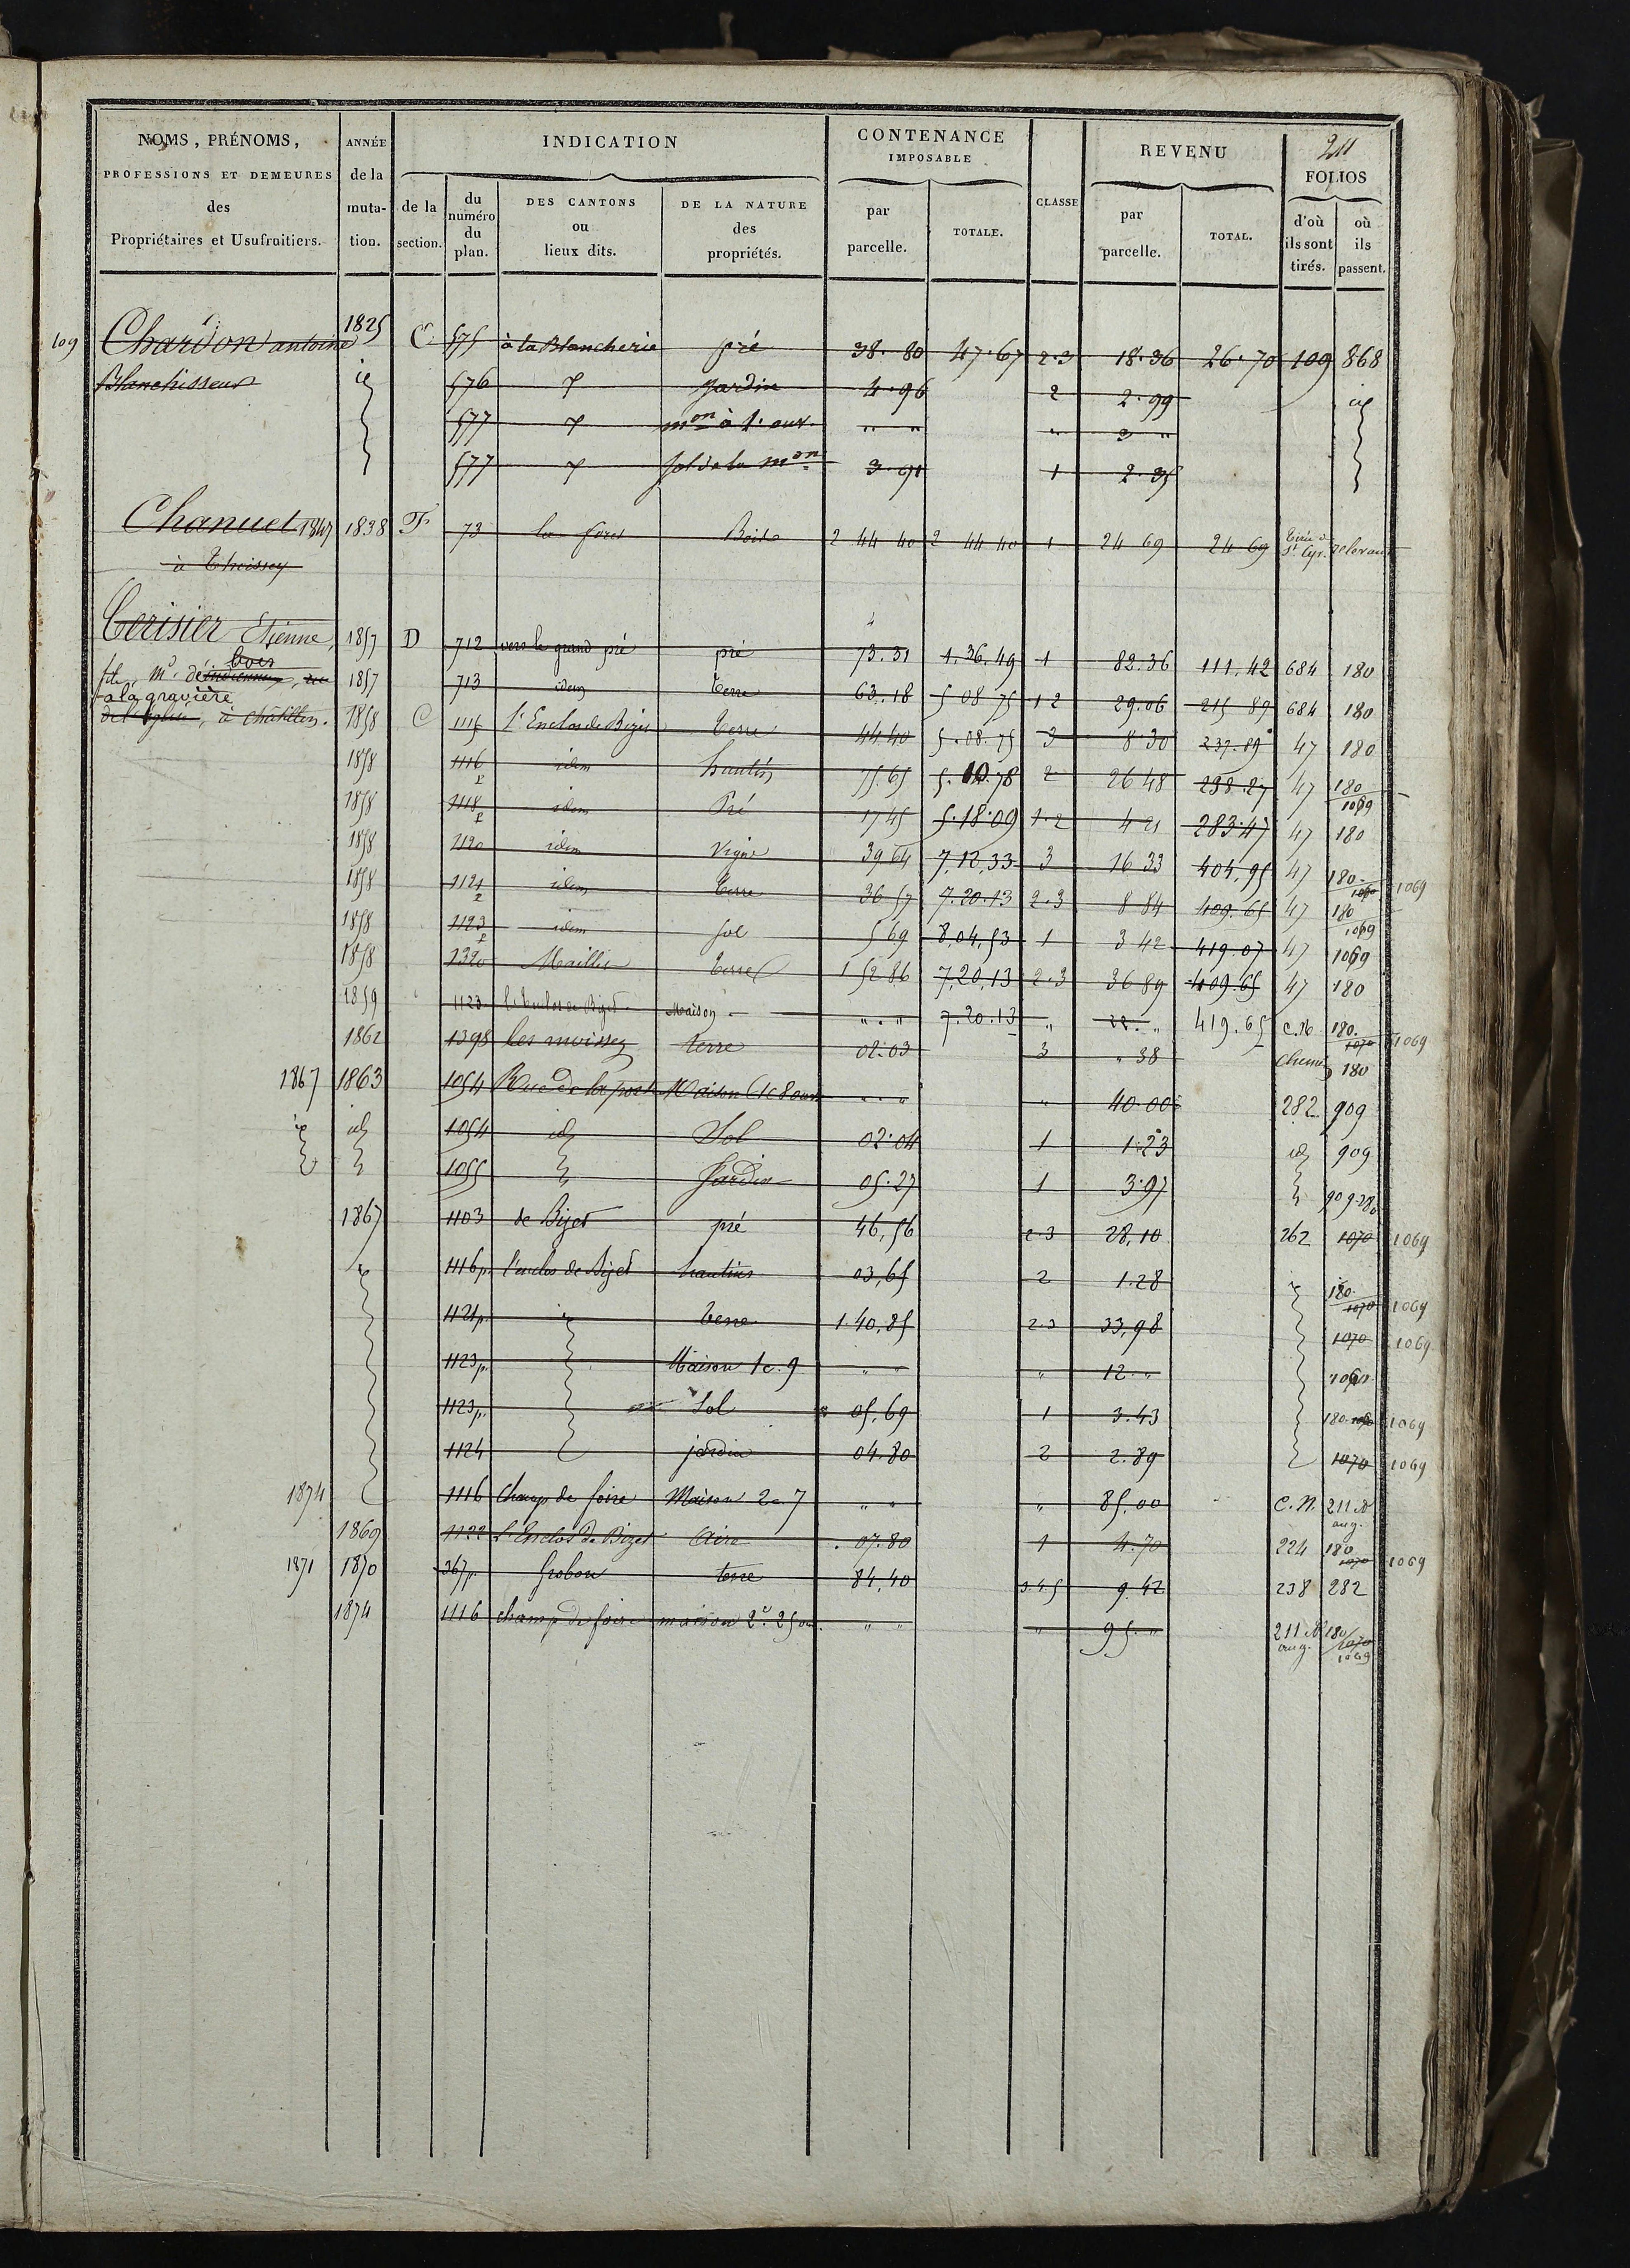 NOMS, PRÉNOMS, PROFESSIONS ET DEMEURES des Propriétaires et Usufruitiers.
ANNÉE de la mutation.
INDICATION
de la section.
du numéro du plan.
DES CANTONS ou lieux dits.
DE LA NATURE des propriétés.
CONTENANCE IMPOSABLE
par parcelle.
TOTALE.
CLASSE
REVENU
par parcelle.
TOTAL.
211
FOLIOS
d'où ils sont tirés.
où ils passent.
109 Chardon antoine 1825 C 575 à la Blancherie pré 38.80 47.67 2.3 18.36 26.70 109 868
Blanchisseur id 576 jardin 4.96 2 2.99 id
577 mon à 1. ouv. " " " 3 "
577 sol de la mon 3.91 1 2.35
Chanuet 1847 1838 F 73 la foret Bois 2 44 40 2 44 40 1 24 69 24 69 St Cyr
à Thoissey
Cerisier Etienne, 1857 D 712 vers le grand pré pré 73.31 1.36.49 1 82.36 111.42 684 180
bois
fils, Md. 1857 713 idem terre 63.18 5 08 75 1 2 29.06 215 89 684 180
à la gravière
de l'église, à Châtillon. 1858 C 1115 l'Enclos de Bizet terre 44 40 5.08.75 3 8.30 237.89 47 180
1858 1116 p idem hautin 75.65 5.10.78 2 26 48 238.27 47 180 1069
1858 1118 p idem Pré 17 45 5.18.09 1.2 4 21 283.47 47 180
1858 1120 idem Vigne 39 64 7,12,33 3 16 33 404,95 47 180 1069
1858 1121 p idem terre 36 57 7.20.13 2.3 8 84 409.65 47 180 1069
1858 1123 p idem sol 5 69 8,04,53 1 3 42 419.07 47 1069
1858 1320 Maillis terre 1 52 86 7,20,13 2.3 36 89 409.65 47 180
1859 1123 l'Enclos de Bizet Maison " . " 7.20.13 " 22. " 419.65 C.N. 180. 1070 1069
1862 1398 Les moissey terre 02.03 3 " 38 chemin 180
1867 1863 1054 Rue de la porte Maison " . " " 40.00 282 909
id id 1054 id Sol 02.04 1 1.23 id 909
1055 Jardin 05.27 1 3.97 909-280
1867 1103 de Bizet pré 46,56 2.3 28,10 262 1070 1069
id 1116 p. l'enclos de Bizet hautins 03,65 2 1.28 id 180. 1070 1069
1121 p. id terre 1.40,85 2.3 33,98 1070 1069
1123 p. Maison 1c. 9 " " " 12 " 1069
1123 p. Sol 05,69 1 3.43 180 1069
1124 jardin 04.80 2 2.89 1070 1069
1874 1116 Champ de foire Maison 2c. 7 " " " 85.00 C.N. 211 aug.
1869 1122 L'Enclos de Bizet Aire 07.80 1 4.70 224 180 1070 1069
1871 1870 367 p. Grobon terre 84,40 3.4.5 9.42 238 282
1874 1116 champ de foire maison 2c. 25 ouv. " " " 95. " 211 aug. 180 1070 1069